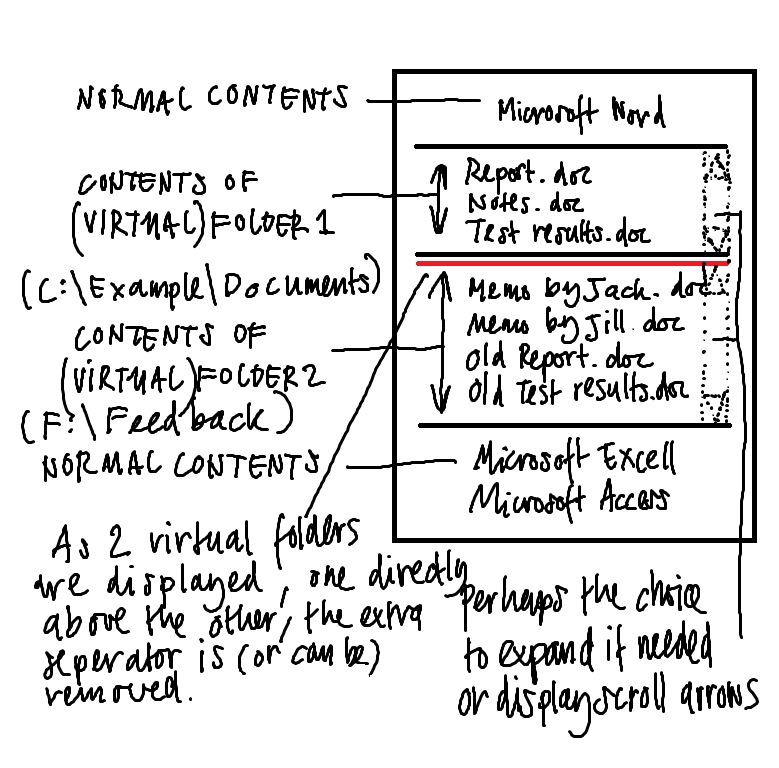 NORMAL CONTENTS
Microsoft Word
CONTENTS OF
(VIRTUAL) FOLDER 1
Report.doc
Notes.doc
Test results.doc
(C:\Example\Documents)
CONTENTS OF
(VIRTUAL) FOLDER 2
(F:\Feedback)
Memo by Jack.doc
Memo by Jill.doc
Old Report.doc
Old Test results.doc
NORMAL CONTENTS
Microsoft Excell
Microsoft Access
As 2 virtual folders
are displayed, one directly
above the other, the extra
seperator is (or can be)
removed.
perhaps the choice
to expand if needed
or display scroll arrows